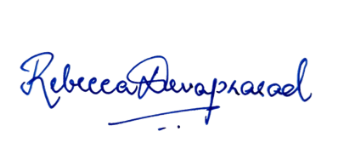 Rebecca Devaprasad